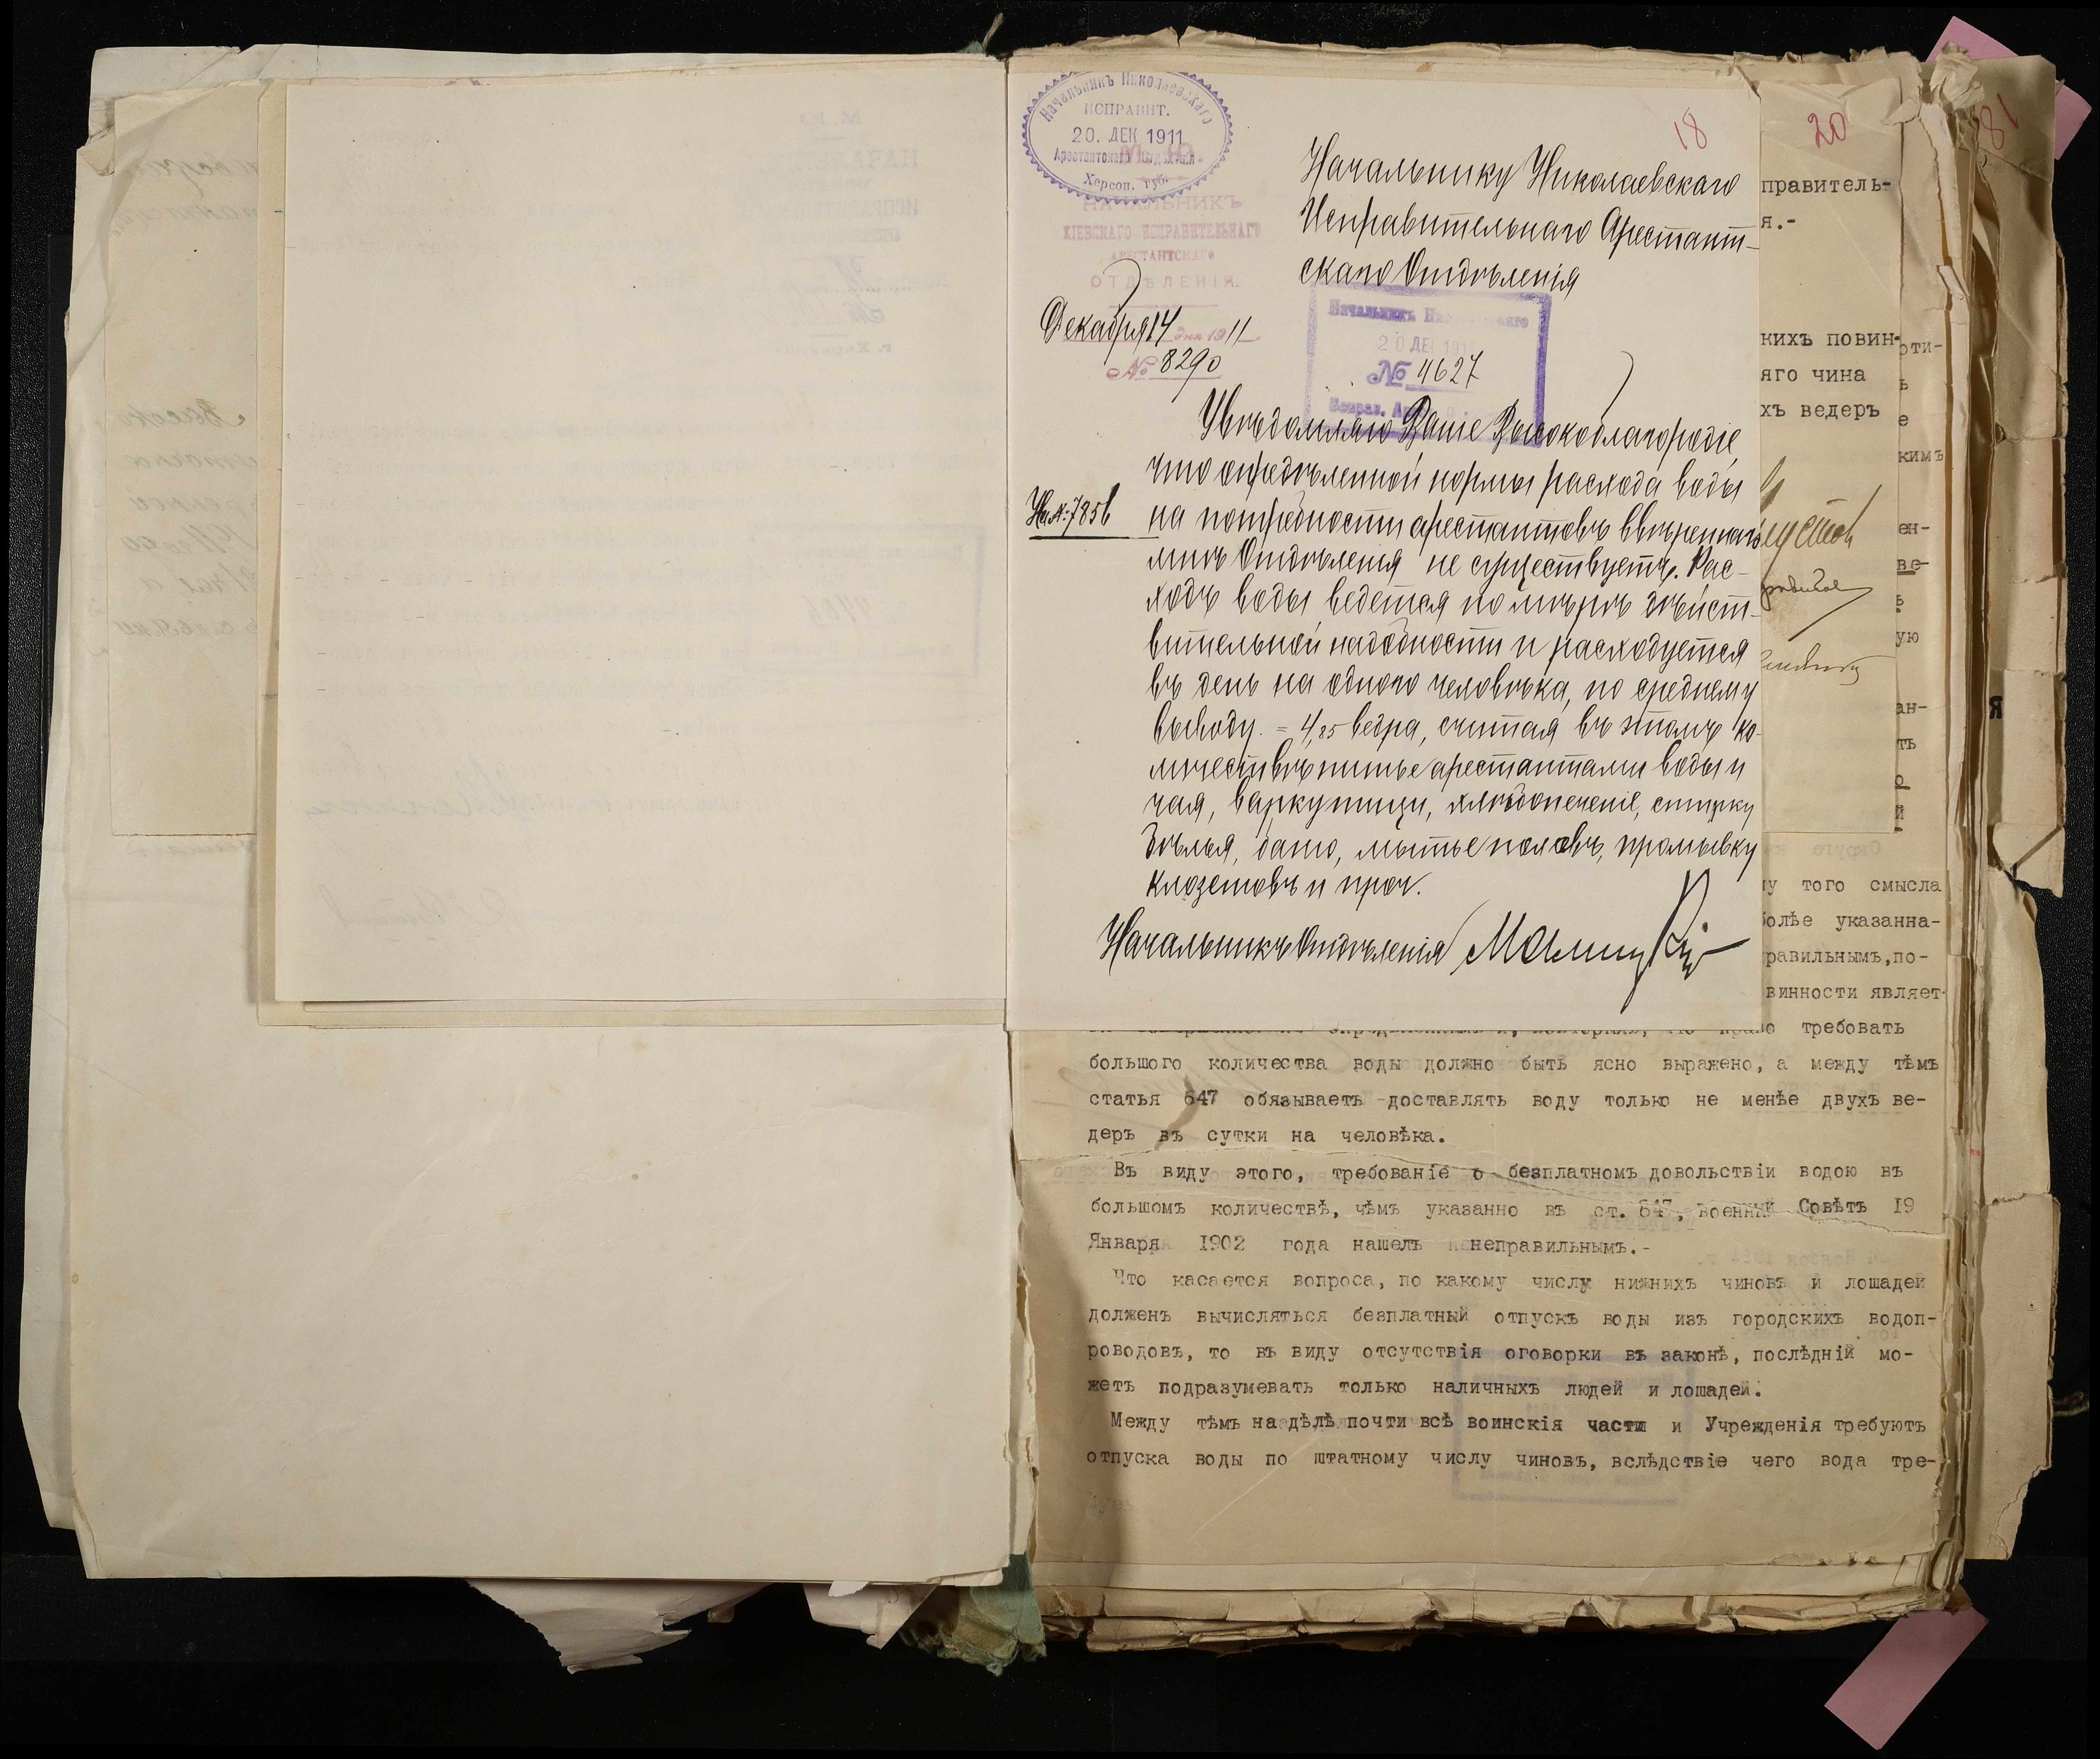 Начальникъ Николаевскаго
ИСПРАВИТ.
20. ДЕК 1911
Арестантскаго Отдѣленія
Херсон. губ.
18
20
81
М. Ю.
НАЧАЛЬНИКЪ
КІЕВСКАГО ИСПРАВИТЕЛЬНАГО
АРЕСТАНТСКАГО
ОТДѢЛЕНІЯ.
Декабря 14 дня 1911
№ 8290
Начальнику Николаевскаго
Исправительнаго Арестант-
скаго Отдѣленія
Начальникъ Николаевскаго
20 ДЕК 1911
№ 4627
Исправ. Ар.
На № 7856
Увѣдомляю Ваше Высокоблагородіе,
что опредѣленной нормы расхода воды
на потребности арестантовъ ввѣреннаго
мнѣ Отдѣленія не существуетъ. Рас-
ходъ воды ведется по мѣрѣ дѣйст-
вительной надобности и расходуется
въ день на одного человѣка, по среднему
выводу. = 4,85 ведра, считая въ этомъ ко-
личествѣ питье арестантами воды и
чая, варку пищи, хлѣбопеченіе, стирку
бѣлья, баню, мытье половъ, промывку
клозетовъ и проч.
Начальникъ Отдѣленія
правитель-
я.-
кихъ повин-
яго чина
хъ ведеръ
оти-
ь
е
кимъ
ен-
ве-
ь
ую
ан-
ть
о
й
я
му того смысла
болѣе указанна-
равильнымъ,по-
винности являет-
право требовать
большого количества воды должно быть ясно выражено, а между тѣмъ
статья 647 обязываетъ доставлять воду только не менѣе двухъ ве-
деръ въ сутки на человѣка.
Въ виду этого, требованіе о безплатномъ довольствіи водою въ
большомъ количествѣ, чѣмъ указанно въ ст. 647, военный Совѣтъ 19
Января 1902 года нашелъ неправильнымъ.-
Что касается вопроса, по какому числу нижнихъ чиновъ и лошадей
долженъ вычисляться безплатный отпускъ воды изъ городскихъ водоп-
роводовъ, то въ виду отсутствія оговорки въ законѣ, послѣдній мо-
жетъ подразумевать только наличныхъ людей и лошадей.
Между тѣмъ на дѣлѣ почти всѣ воинскія части и Учрежденія требуютъ
отпуска воды по штатному числу чиновъ, вслѣдствіе чего вода тре-